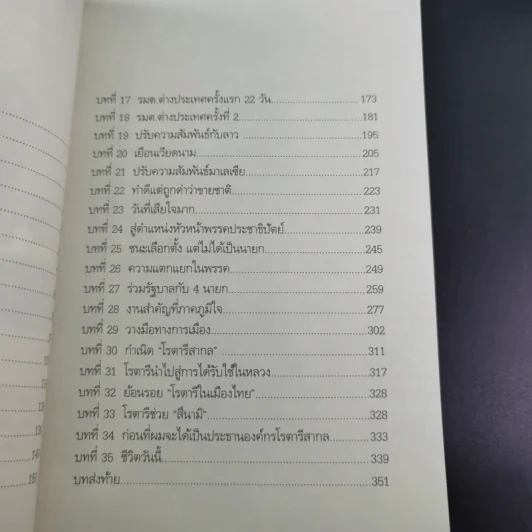 บทที่ 17 รมต.ต่างประเทศครั้งแรก 22 วัน.....173
บทที่ 18 รมต.ต่างประเทศครั้งที่ 2.....181
บทที่ 19 ปรับความสัมพันธ์กับลาว.....195
บทที่ 20 เยือนเวียดนาม.....205
บทที่ 21 ปรับความสัมพันธ์มาเลเซีย.....217
บทที่ 22 ทำดีแต่ถูกด่าว่าขายชาติ.....223
บทที่ 23 วันที่เสียใจมาก.....231
บทที่ 24 สู่ตำแหน่งหัวหน้าพรรคประชาธิปัตย์.....239
บทที่ 25 ชนะเลือกตั้ง แต่ไม่ได้เป็นนายก.....245
บทที่ 26 ความแตกแยกในพรรค.....249
บทที่ 27 ร่วมรัฐบาลกับ 4 นายก.....259
บทที่ 28 งานสำคัญที่ภาคภูมิใจ.....277
บทที่ 29 วางมือทางการเมือง.....302
บทที่ 30 กำเนิด "โรตารีสากล".....311
บทที่ 31 โรตารีนำไปสู่การได้รับใช้ในหลวง.....317
บทที่ 32 ย้อนรอย "โรตารีในเมืองไทย".....328
บทที่ 33 โรตารีช่วย "สึนามิ".....328
บทที่ 34 ก่อนที่ผมจะได้เป็นประธานองค์กรโรตารีสากล.....333
บทที่ 35 ชีวิตวันนี้.....339
บทส่งท้าย.....351